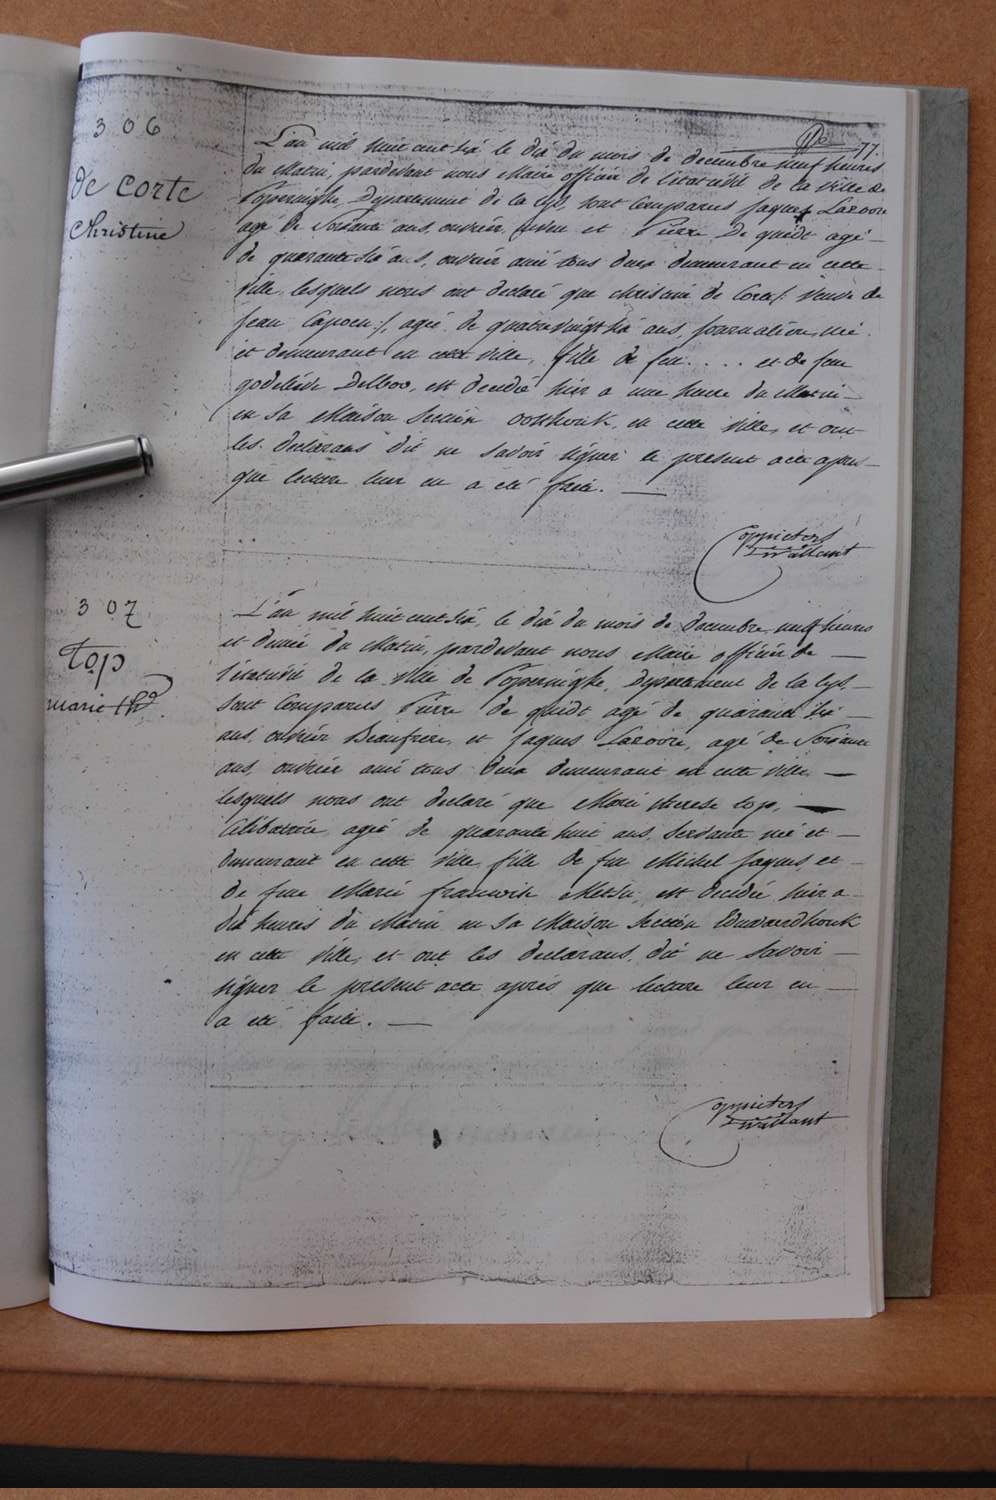 77.
306
de corte
Christine
L'an mil huit cent six le dix du mois de decembre neuf heures
du Matin, pardevant nous Maire officier de l'etat civil de la ville de
Poperinghe, Departement de la Lys, sont Comparus Jaques Lazoire
agé de Soixante ans, ouvrier et Pierre De quidt agé
de quarante six ans, ouvrier ami tous deux demeurant en cette
ville, lesquels nous ont declaré que christine de Corte /: veuve de
Jean Capoen :/, agée de quatrevingt six ans, journaliere, née
et demeurant en cette ville, fille de feu . . . . et de feu
godelieve Delboo, est decedée hier a une heure du Matin
en sa Maison Section oosthouk, en cette ville, et ont
les declarans dit ne savoir signer le present acte apres
que lecture leur en a eté faite.
Coppieters
Twallant
307
top
marie thr
L'an mil huit cent six, le dix du mois de decembre, neuf heures
et demie du Matin, pardevant nous Maire officier de
l'etat civil de la ville de Poperinghe, Departement de la Lys,
sont Comparus Pierre de quidt agé de quarante six
ans, ouvrier Beaufrere, et Jaques Lazoire, agé de Soixante
ans, ouvrier ami tous deux demeurant en cette ville
lesquels nous ont declaré que Marie therese top,
Celibataire, agée de quarante huit ans, Servante née et
demeurant en cette ville, fille de feu Michel Jaques, et
de feue Marie francoise Metsu, est decedée hier a
dix heures du Matin en sa Maison Section Edwaardhouk
en cette ville, et ont les declarans, dit ne savoir
signer le present acte après que lecture leur en
a eté faite.
Coppieters
Twallant